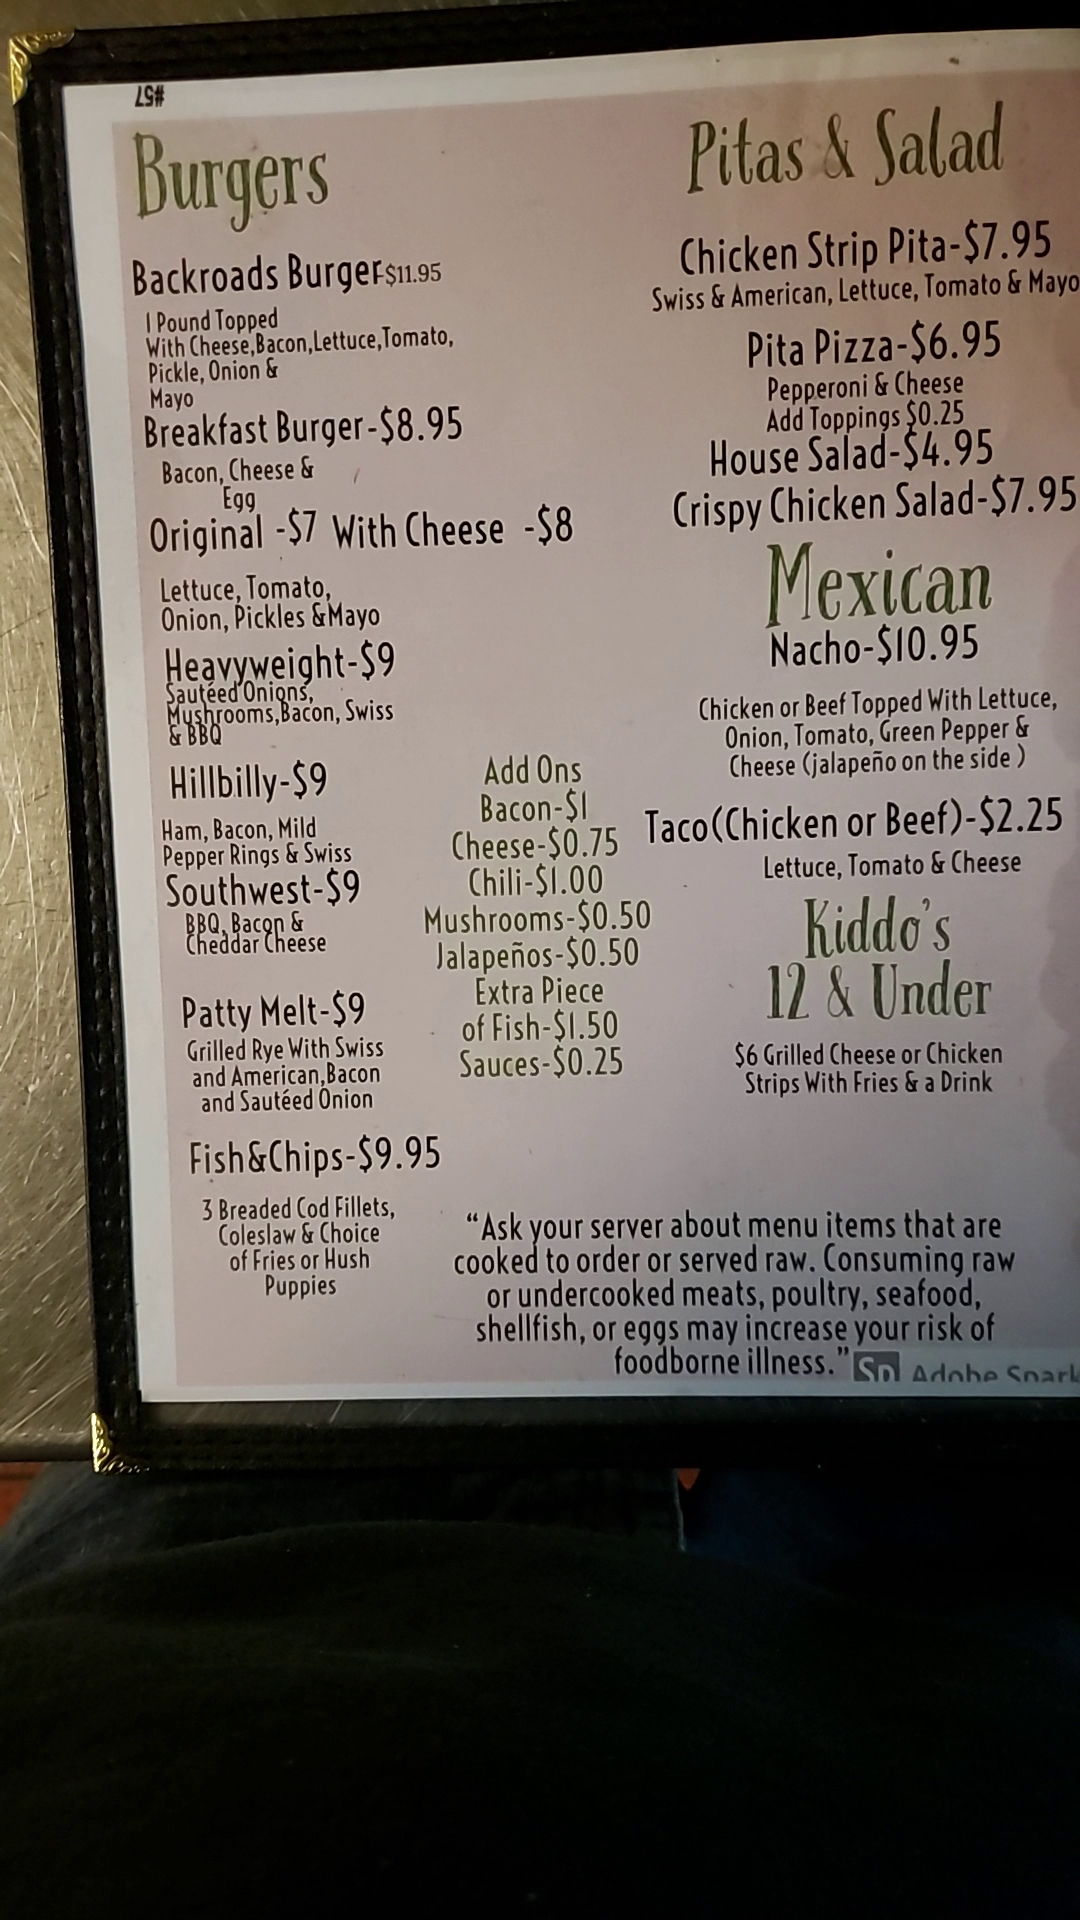 #57
Burgers
Backroads Burger-$11.95
1 Pound Topped
With Cheese,Bacon,Lettuce,Tomato,
Pickle, Onion &
Mayo
Breakfast Burger-$8.95
Bacon, Cheese &
Egg
Original -$7 With Cheese -$8
Lettuce, Tomato,
Onion, Pickles &Mayo
Heavyweight-$9
Sautéed Onions,
Mushrooms,Bacon, Swiss
& BBQ
Hillbilly-$9
Ham, Bacon, Mild
Pepper Rings & Swiss
Southwest-$9
BBQ, Bacon &
Cheddar Cheese
Patty Melt-$9
Grilled Rye With Swiss
and American,Bacon
and Sautéed Onion
Fish&Chips-$9.95
3 Breaded Cod Fillets,
Coleslaw & Choice
of Fries or Hush
Puppies
Add Ons
Bacon-$1
Cheese-$0.75
Chili-$1.00
Mushrooms-$0.50
Jalapeños-$0.50
Extra Piece
of Fish-$1.50
Sauces-$0.25
Pitas & Salad
Chicken Strip Pita-$7.95
Swiss & American, Lettuce, Tomato & Mayo
Pita Pizza-$6.95
Pepperoni & Cheese
Add Toppings $0.25
House Salad-$4.95
Crispy Chicken Salad-$7.95
Mexican
Nacho-$10.95
Chicken or Beef Topped With Lettuce,
Onion, Tomato, Green Pepper &
Cheese (jalapeño on the side )
Taco(Chicken or Beef)-$2.25
Lettuce, Tomato & Cheese
Kiddo's
12 & Under
$6 Grilled Cheese or Chicken
Strips With Fries & a Drink
“Ask your server about menu items that are
cooked to order or served raw. Consuming raw
or undercooked meats, poultry, seafood,
shellfish, or eggs may increase your risk of
foodborne illness.”
Sp Adobe Spark